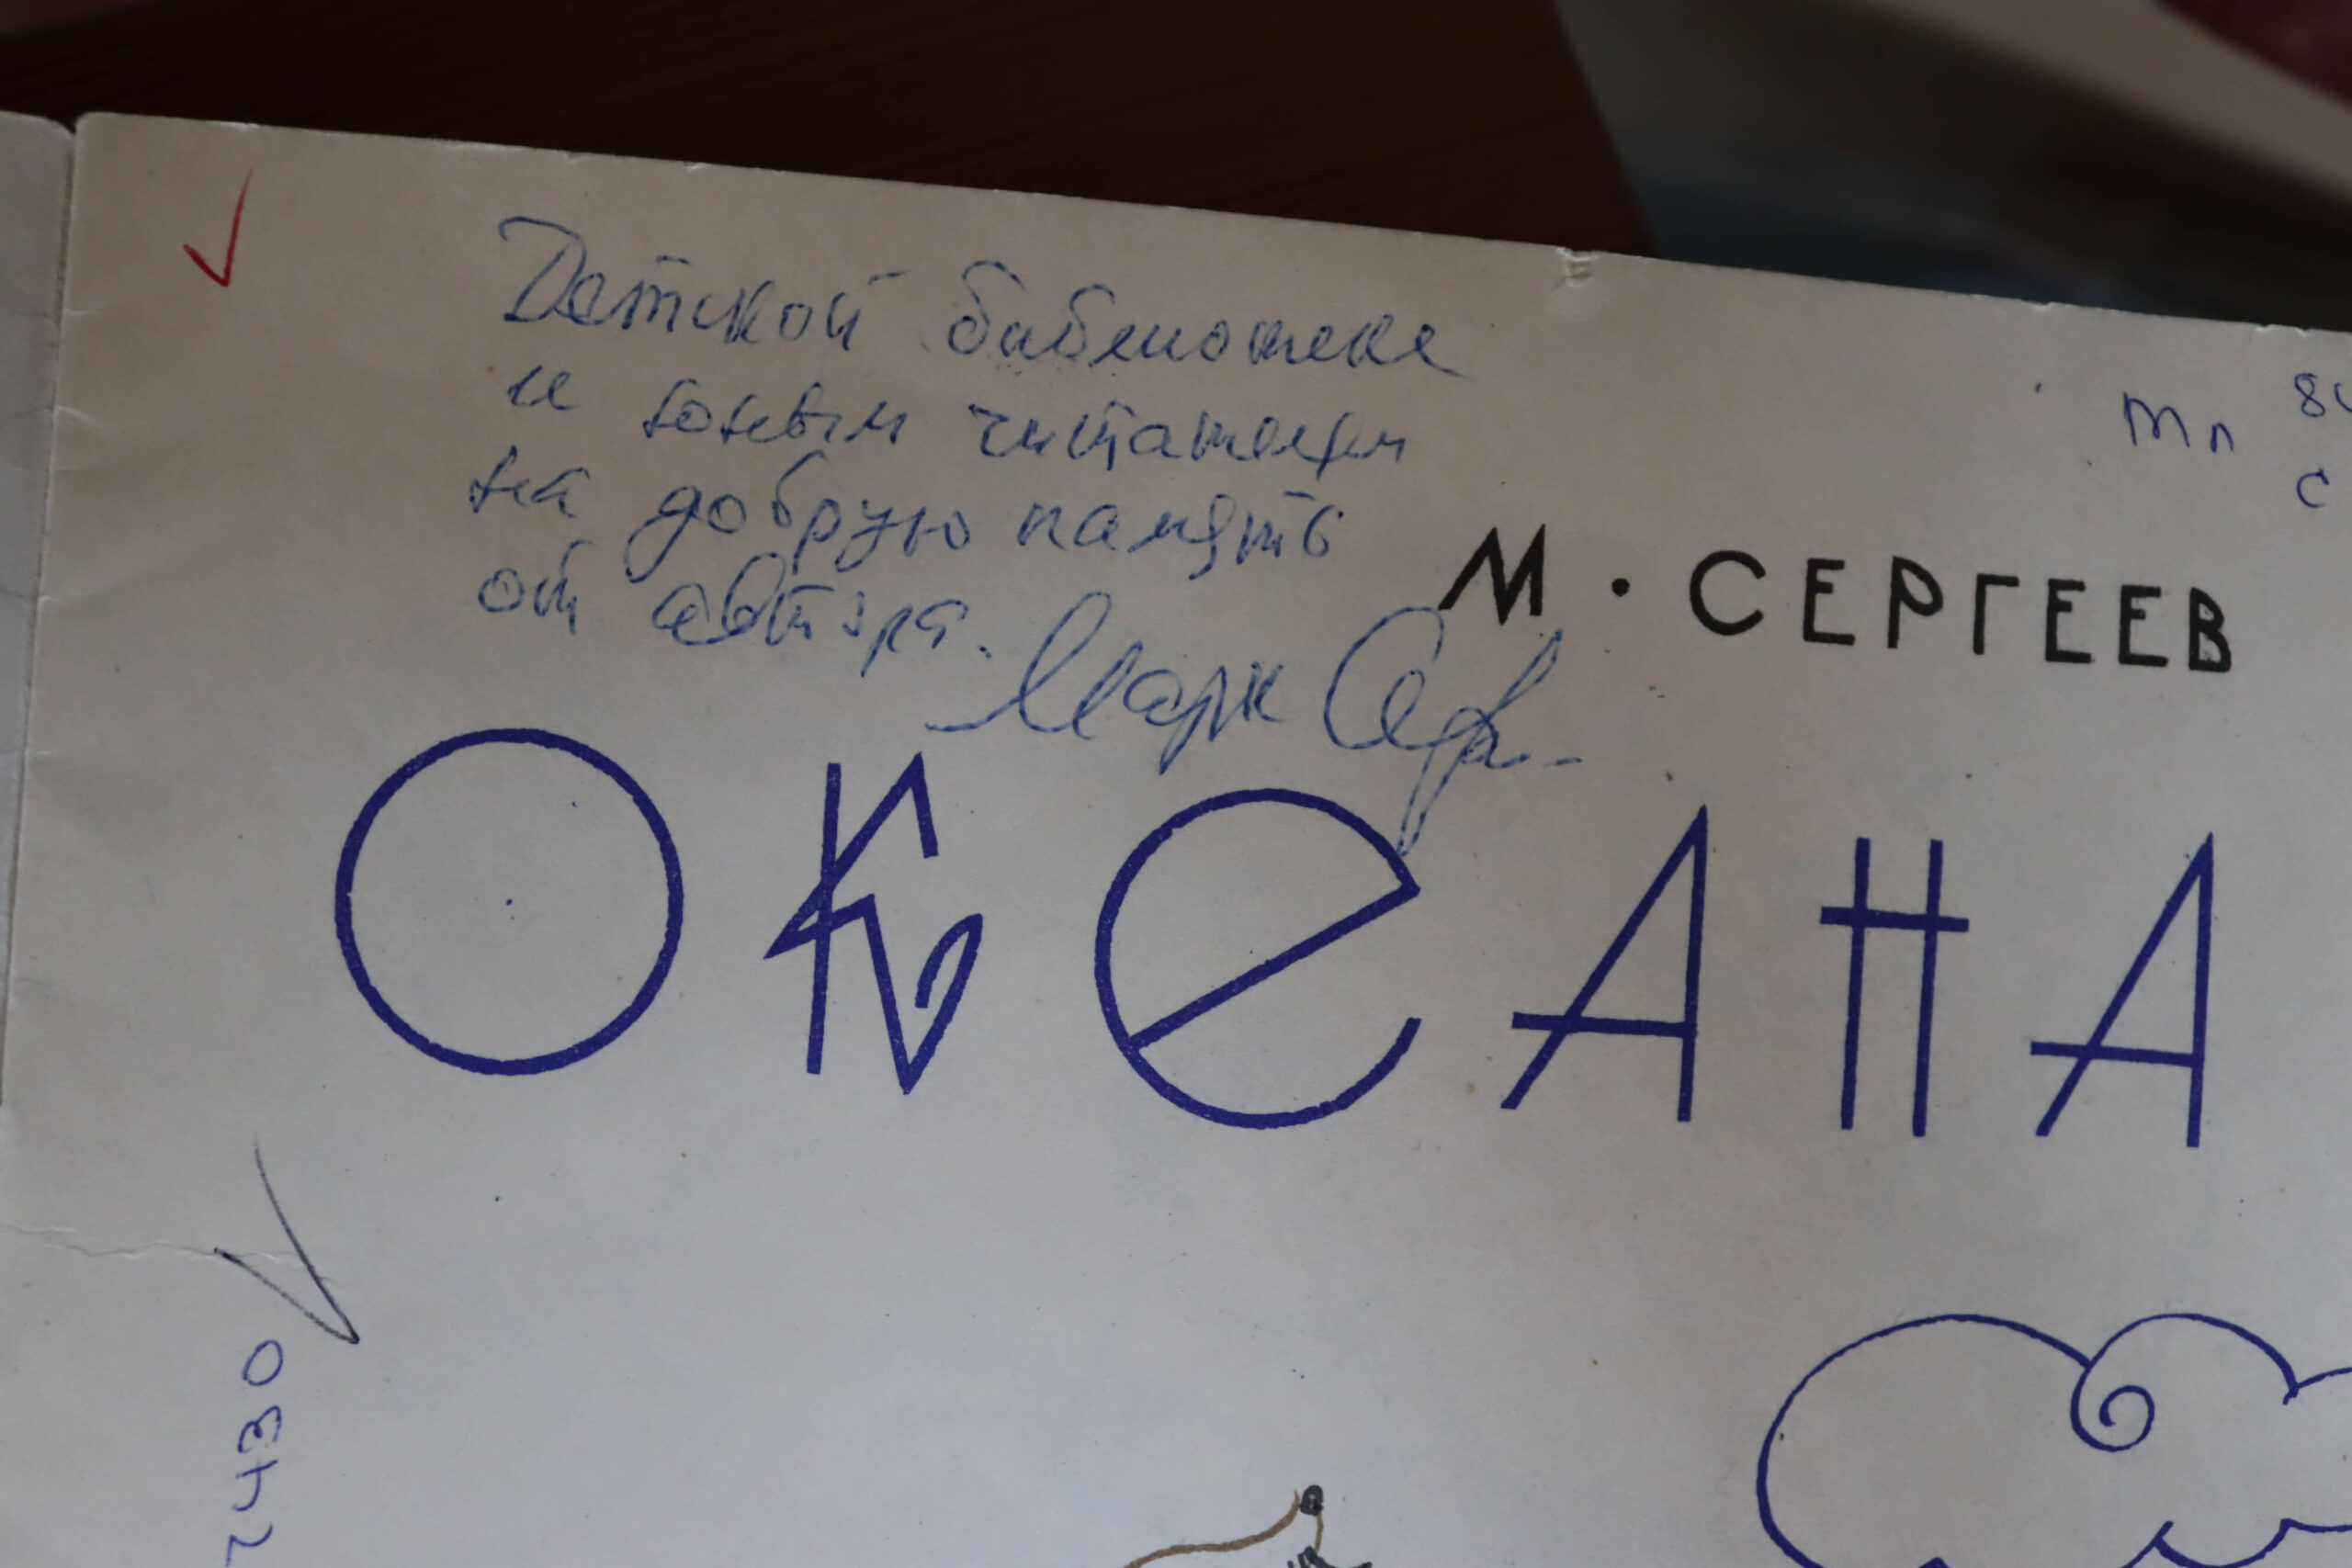 Детской библиотеке
и юным читателям
на добрую память
от автора.
Марк Серг.-
Мл 84
С
М. СЕРГЕЕВ
ОКЕАНА
7430